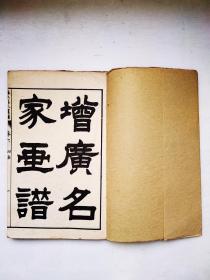 增廣名
家画譜